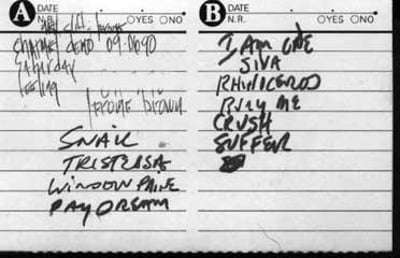 A DATE
N.R. YES NO
DEMO 09.0690
Saturday
Jerome Brown
SNAIL
TRISTESSA
WINDOW PAINE
DAYDREAM
B DATE
N.R. YES NO
I AM ONE
SIVA
RHINICEROS
BURY ME
CRUSH
SUFFER